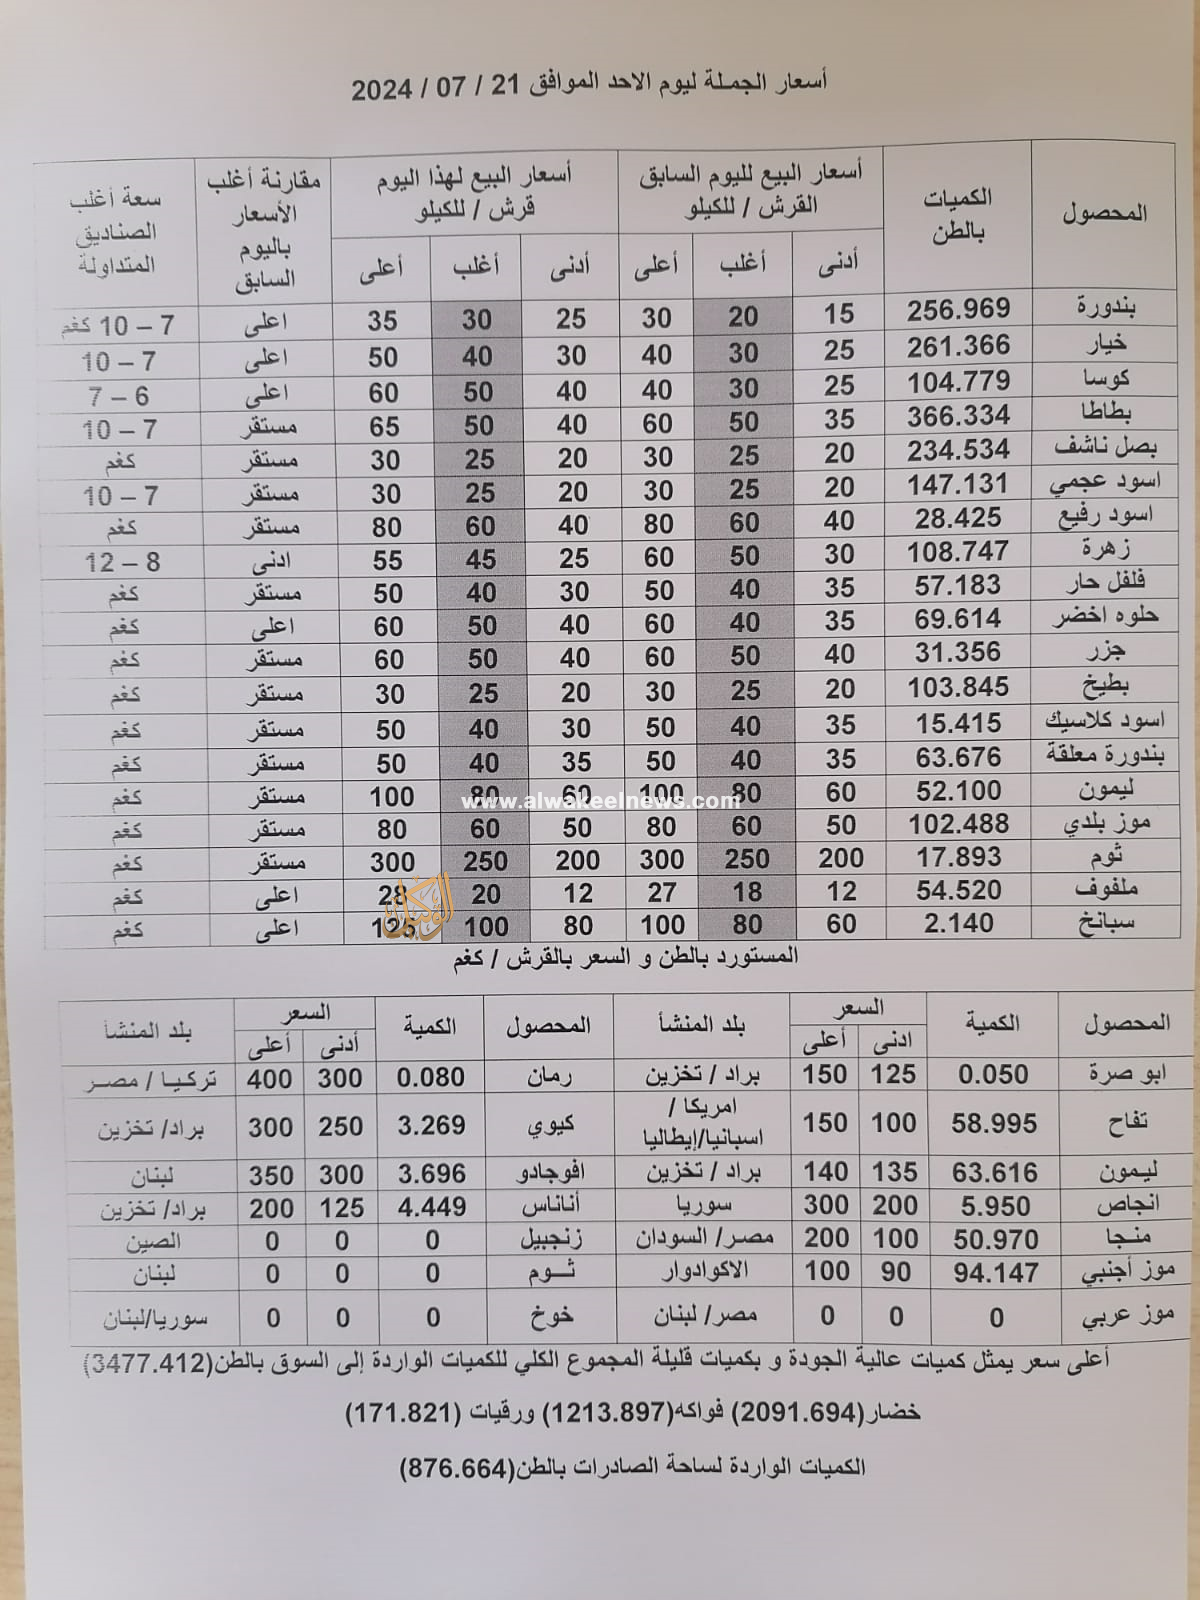 أسعار الجملة ليوم الاحد الموافق 21 / 07 / 2024
المحصول الكميات بالطن أسعار البيع لليوم السابق القرش / للكيلو أسعار البيع لهذا اليوم قرش / للكيلو مقارنة أغلب الأسعار باليوم السابق سعة أغلب الصناديق المتداولة
أدنى أغلب أعلى أدنى أغلب أعلى
بندورة 256.969 15 20 30 25 30 35 اعلى 7 – 10 كغم
خيار 261.366 25 30 40 30 40 50 اعلى 7 – 10
كوسا 104.779 25 30 40 40 50 60 اعلى 6 – 7
بطاطا 366.334 35 50 60 40 50 65 مستقر 7 – 10
بصل ناشف 234.534 20 25 30 20 25 30 مستقر كغم
اسود عجمي 147.131 20 25 30 20 25 30 مستقر 7 – 10
اسود رفيع 28.425 40 60 80 40 60 80 مستقر كغم
زهرة 108.747 30 50 60 25 45 55 ادنى 8 – 12
فلفل حار 57.183 35 40 50 30 40 50 مستقر كغم
حلوه اخضر 69.614 35 40 60 40 50 60 اعلى كغم
جزر 31.356 40 50 60 40 50 60 مستقر كغم
بطيخ 103.845 20 25 30 20 25 30 مستقر كغم
اسود كلاسيك 15.415 35 40 50 30 40 50 مستقر كغم
بندورة معلقة 63.676 35 40 50 35 40 50 مستقر كغم
ليمون 52.100 60 80 100 60 80 100 مستقر كغم
www.alwakeelnews.com
موز بلدي 102.488 50 60 80 50 60 80 مستقر كغم
ثوم 17.893 200 250 300 200 250 300 مستقر كغم
ملفوف 54.520 12 18 27 12 20 28 اعلى كغم
الوكيل
سبانخ 2.140 60 80 100 80 100 125 اعلى كغم
المستورد بالطن و السعر بالقرش / كغم
المحصول الكمية السعر بلد المنشأ المحصول الكمية السعر بلد المنشأ
ادنى أعلى أدنى أعلى
ابو صرة 0.050 125 150 براد / تخزين رمان 0.080 300 400 تركيا / مصر
تفاح 58.995 100 150 امريكا / اسبانيا/إيطاليا كيوي 3.269 250 300 براد/ تخزين
ليمون 63.616 135 140 براد / تخزين افوجادو 3.696 300 350 لبنان
انجاص 5.950 200 300 سوريا أناناس 4.449 125 200 براد/ تخزين
منجا 50.970 100 200 مصر/ السودان زنجبيل 0 0 0 الصين
موز أجنبي 94.147 90 100 الاكوادوار ثـــوم 0 0 0 لبنان
موز عربي 0 0 0 مصر/ لبنان خوخ 0 0 0 سوريا/لبنان
أعلى سعر يمثل كميات عالية الجودة و بكميات قليلة المجموع الكلي للكميات الواردة إلى السوق بالطن(3477.412)
خضار(2091.694) فواكه(1213.897) ورقيات (171.821)
الكميات الواردة لساحة الصادرات بالطن(876.664)